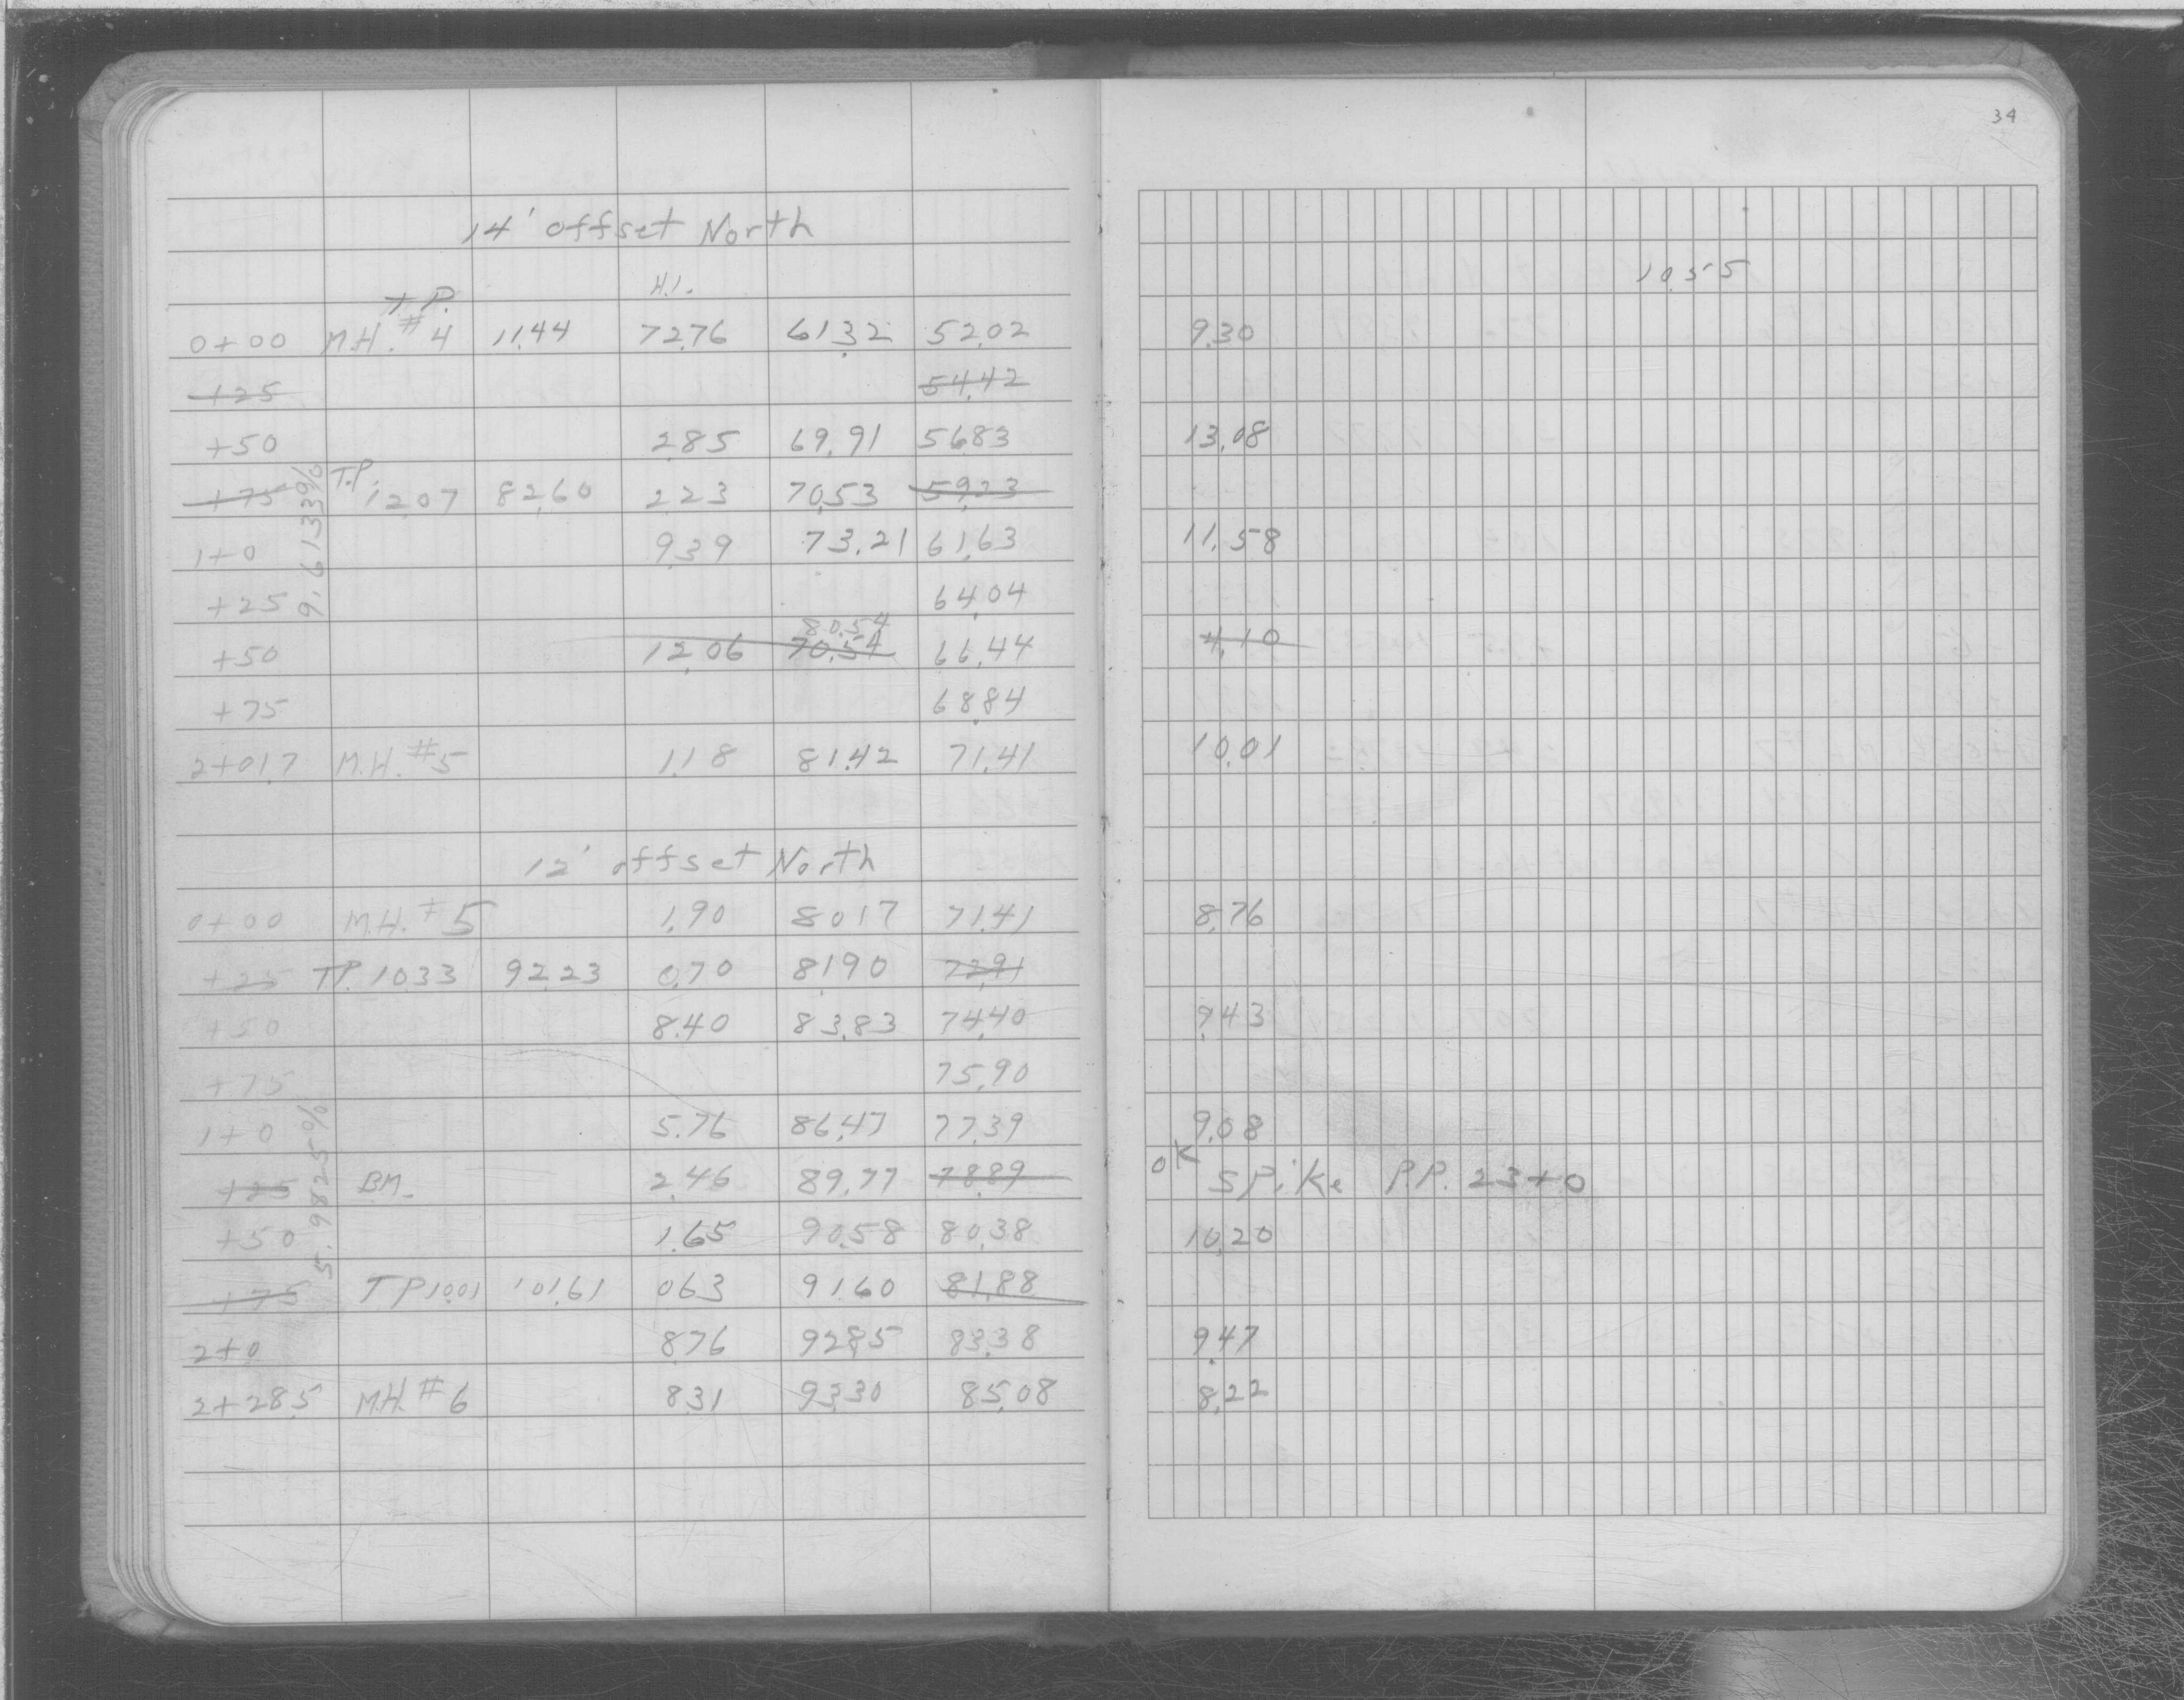 34
14' offset North
10.55
T.P. H.I.
0+00 M.H. #4 11.44 72.76 61.32 52.02 9.30
+25 54.42
+50 2.85 69.91 56.83 13.08
+75 T.P. 12.07 82.60 2.23 70.53 59.23
1+0 9.39 73.21 61.63 11.58
+25 64.04
80.54
+50 12.06 70.54 66.44 4.10
+75 68.84
2+01.7 M.H. #5 1.18 81.42 71.41 10.01
9.6133%
12' offset North
0+00 M.H. #5 1.90 80.17 71.41 8.76
+25 T.P. 10.33 92.23 0.70 81.90 72.91
+50 8.40 83.83 74.40 9.43
+75 75.90
1+0 5.76 86.47 77.39 9.08
+25 BM. 2.46 89.77 78.89 OK Spike P.P. 23+0
+50 1.65 90.58 80.38 10.20
+75 TP 10.01 101.61 0.63 91.60 81.88
2+0 8.76 92.85 83.38 9.47
2+28.5 M.H. #6 8.31 93.30 85.08 8.22
5.9825%